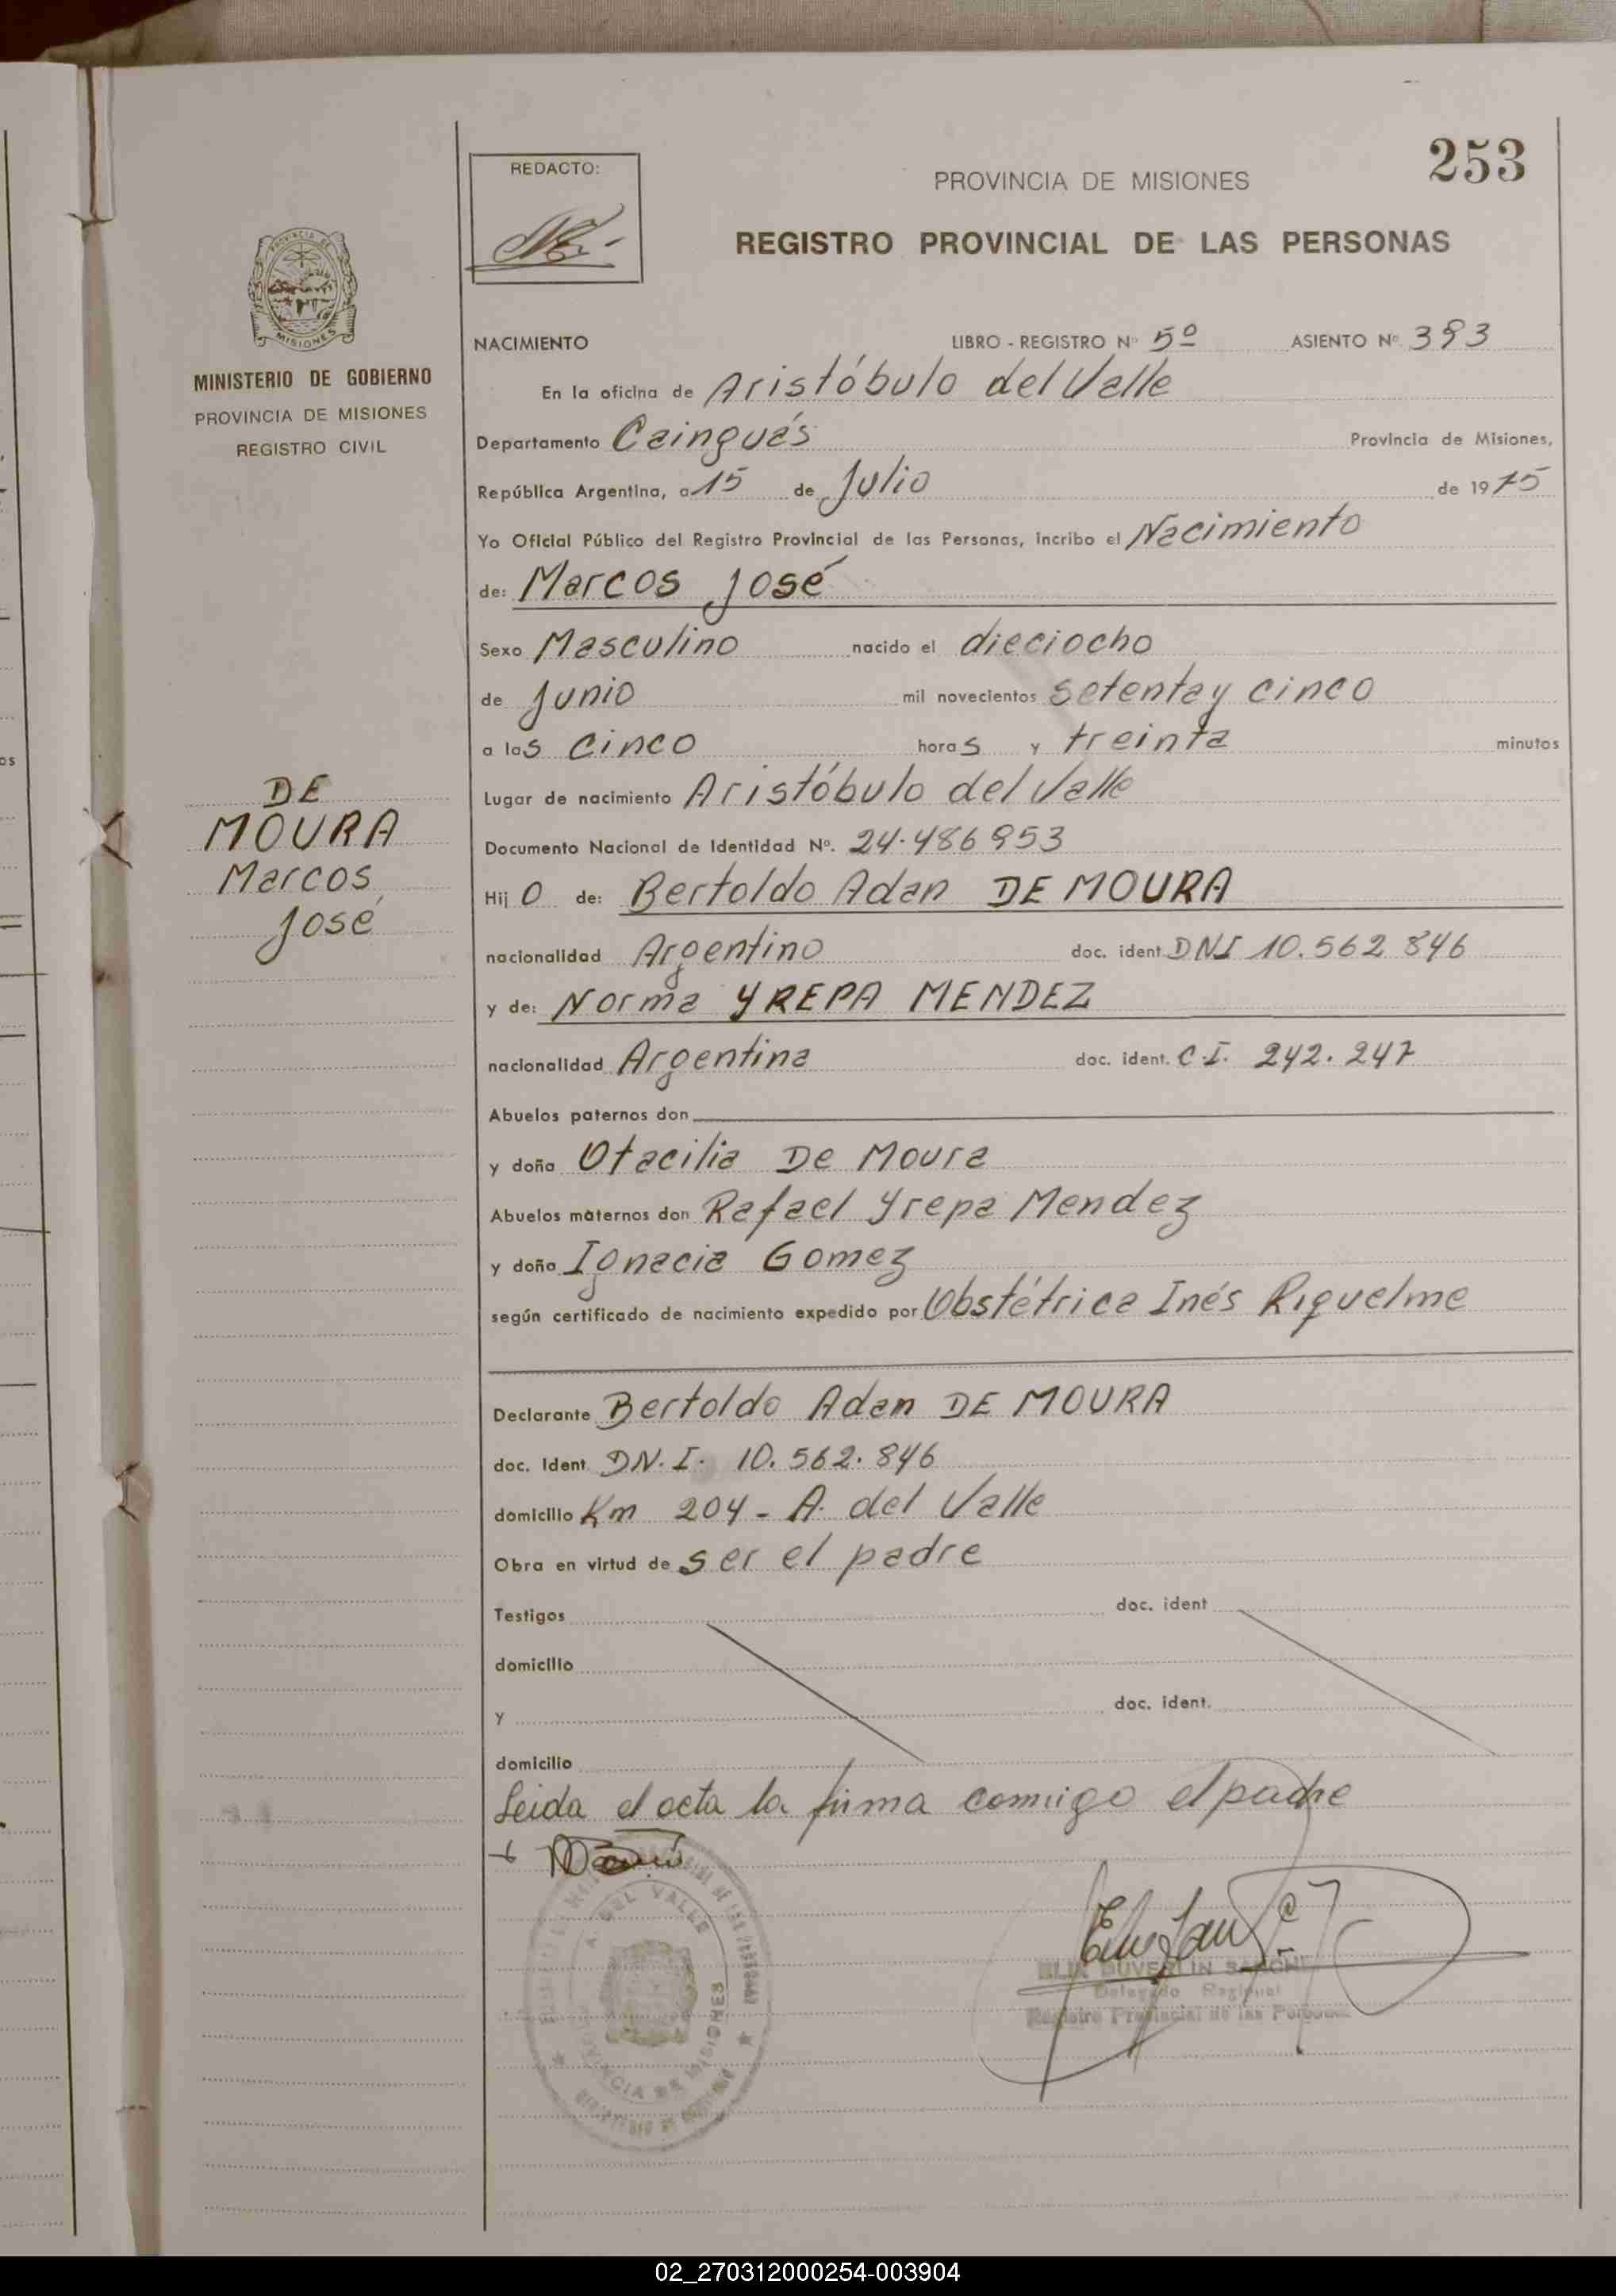 253
REDACTO:
PROVINCIA DE MISIONES
REGISTRO PROVINCIAL DE LAS PERSONAS
PROVINCIA DE
MISIONES
MINISTERIO DE GOBIERNO
PROVINCIA DE MISIONES
REGISTRO CIVIL
DE
MOURA
Marcos
José
NACIMIENTO LIBRO - REGISTRO Nº 5º ASIENTO Nº 393
En la oficina de Aristóbulo del Valle
Departamento Cainguás Provincia de Misiones,
República Argentina, a 15 de Julio de 1975
Yo Oficial Público del Registro Provincial de las Personas, incribo el Nacimiento
de: Marcos José
Sexo Masculino nacido el dieciocho
de Junio mil novecientos setenta y cinco
a las cinco horas y treinta minutos
Lugar de nacimiento Aristóbulo del Valle
Documento Nacional de Identidad Nº. 24.486953
Hijo de: Bertoldo Adan DE MOURA
nacionalidad Argentino doc. ident. DNI 10.562.846
y de: Norma YREPA MENDEZ
nacionalidad Argentina doc. ident. C.I. 242.247
Abuelos paternos don
y doña Otacilia De Moura
Abuelos maternos don Rafael Yrepa Mendez
y doña Ignacia Gomez
según certificado de nacimiento expedido por Obstétrica Inés Riquelme
Declarante Bertoldo Adan DE MOURA
doc. Ident. DN.I. 10.562.846
domicilio Km 204 - A. del Valle
Obra en virtud de ser el padre
Testigos doc. ident
domicilio
y doc. ident.
domicilio
Leida el acta la firma conmigo el padre
A. DEL VALLE
PROVINCIA DE MISIONES
Delegado Regional
Registro Provincial de las Personas
02_270312000254-003904